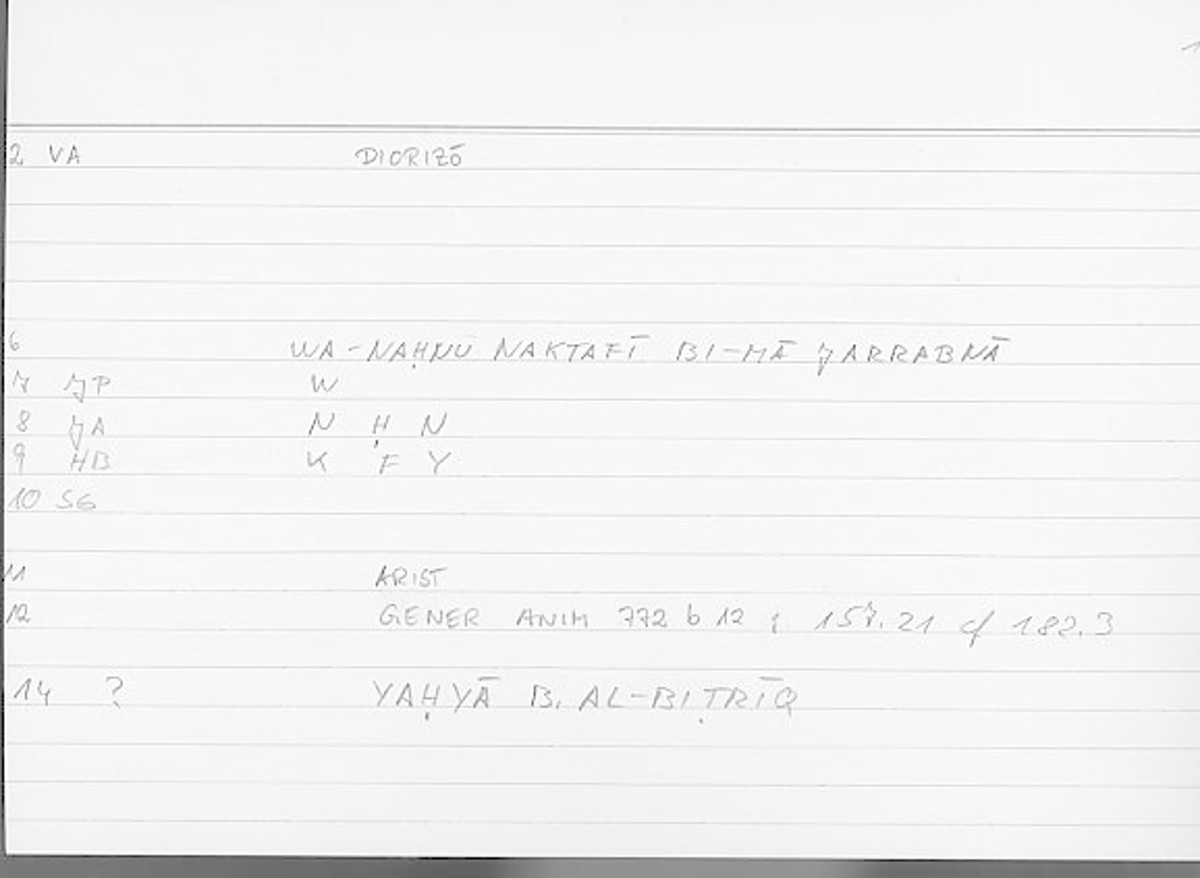 1
2 VA DIORIZŌ
6 WA-NAḤNU NAKTAFĪ BI-MĀ JARRABNĀ
7 JP W
8 JA N Ḥ N
9 HB K F Y
10 SG
11 ARIST
12 GENER ANIM 772 b 12 ; 157.21 cf 182.3
14 ? YAḤYĀ B. AL-BIṬRĪQ